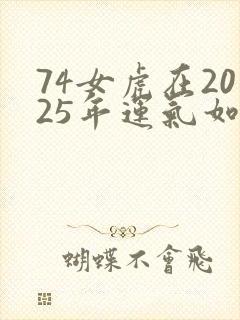 74女虎在20
25年運氣如
蝴蝶不會飛